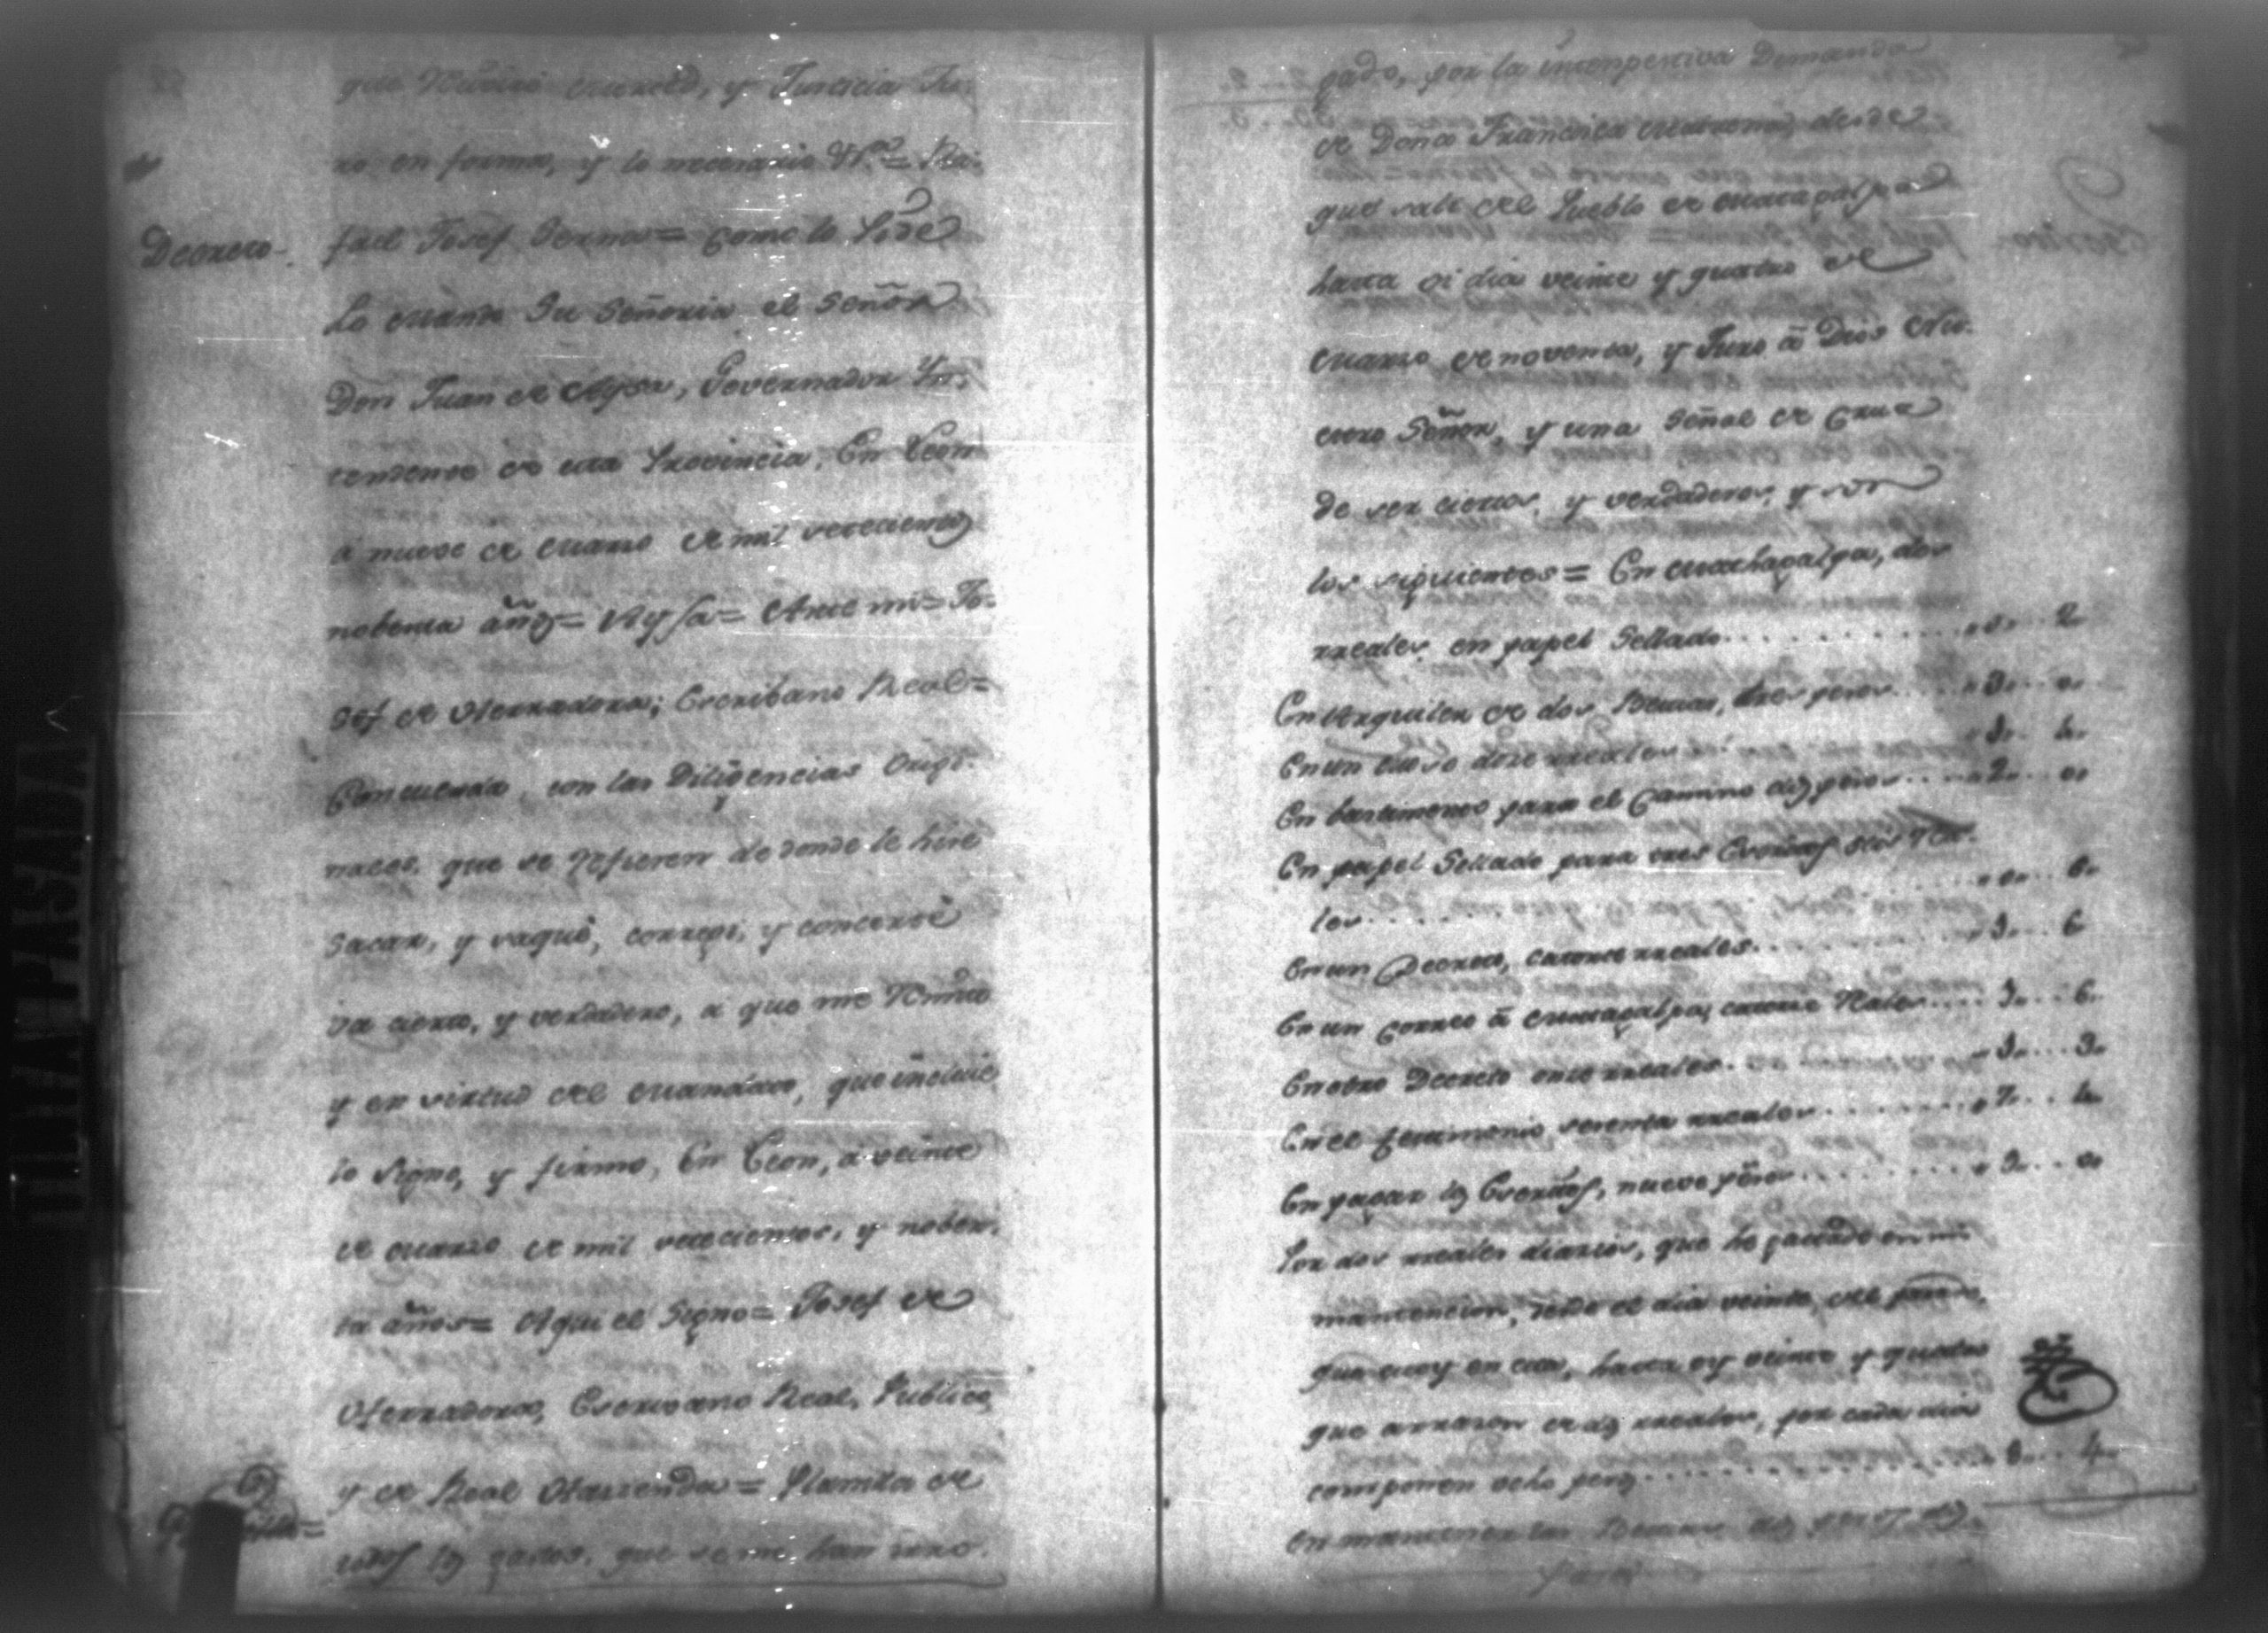 que reciviré merced, y Justicia Ju-
ro en forma, y lo necesario V.ª = Ra-
Decreto- fael Josef Serna = Como lo pide
Lo mandó Su Señoria el Señor
Don Juan de Aysa, Governador Yn-
tendente de esta Provincia, En Leon
á nueve de Marzo de mil setecientos
nobenta años = Aysa = Ante mi = Jo-
sef de Herradora; Escribano Real =
Concuerda, con las Diligencias Origi-
nales, que se refieren de donde le hise
sacar, y saqué, correxi, y concerté
va cierto, y verdadero, a que me Remito
y en virtud del mandato, que incluie
lo signo, y firmo, En Leon, á veinte
de Marzo de mil setecientos, y noben-
ta años = Aqui el Signo = Josef de
Herradora, Escrivano Real, Publico,
y de Real Hacienda = Planilla de
todos los gastos, que se me han
gado, por la intenpestiva Demanda
de Doña Francisca desde
que sali del Pueblo de Matagalpa
hasta oi dia veinte y quatro de
Marzo de noventa, y Juro á Dios Nu-
estro Señor, y una Señal de Cruz
de ser ciertos, y verdaderos, y son
los siguientes = En Mathagalpa, dos
rreales en papel Sellado 2
En Arquiler de dos Bestias, tres pesos 3
En un doze rreales 1 4
En bastimento para el Camino dos pesos 2
En papel Sellado para tres Escritos seis rrea-
les 6
En un Decreto, catorce rreales 1 6
En un Correo á Matagalpa, catorce Reales 1 6
En otro Decreto once rreales 1 3
En el testimonio sesenta rreales 7 4
En pagar los Escritos, nueve pesos 9
Por dos rreales diarios, que he gastado en mi
mantencion, desde el dia veinte del
que estoy en esta, hasta oy veinte y quatro
que arrazon de dos rreales, por cada dia
componen ocho pesos 8 4
En mantener las Bestias dos